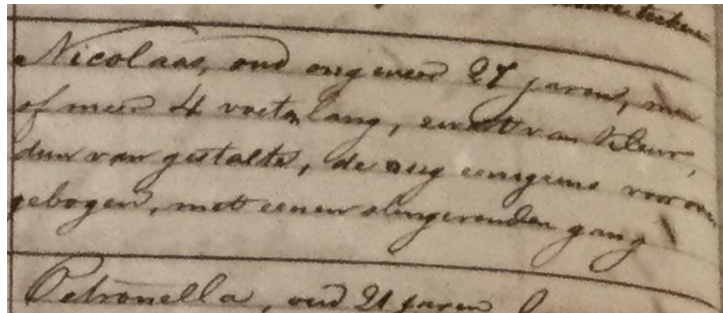 teeken
Nicolaas, oud ongeveer 27 jaren, min
of meer 4 voeten lang, zwart van kleur,
dun van gestalte, de rug eenigzins voorover
gebogen, met eenen slingerenden gang
Petronella, oud 21 jaren